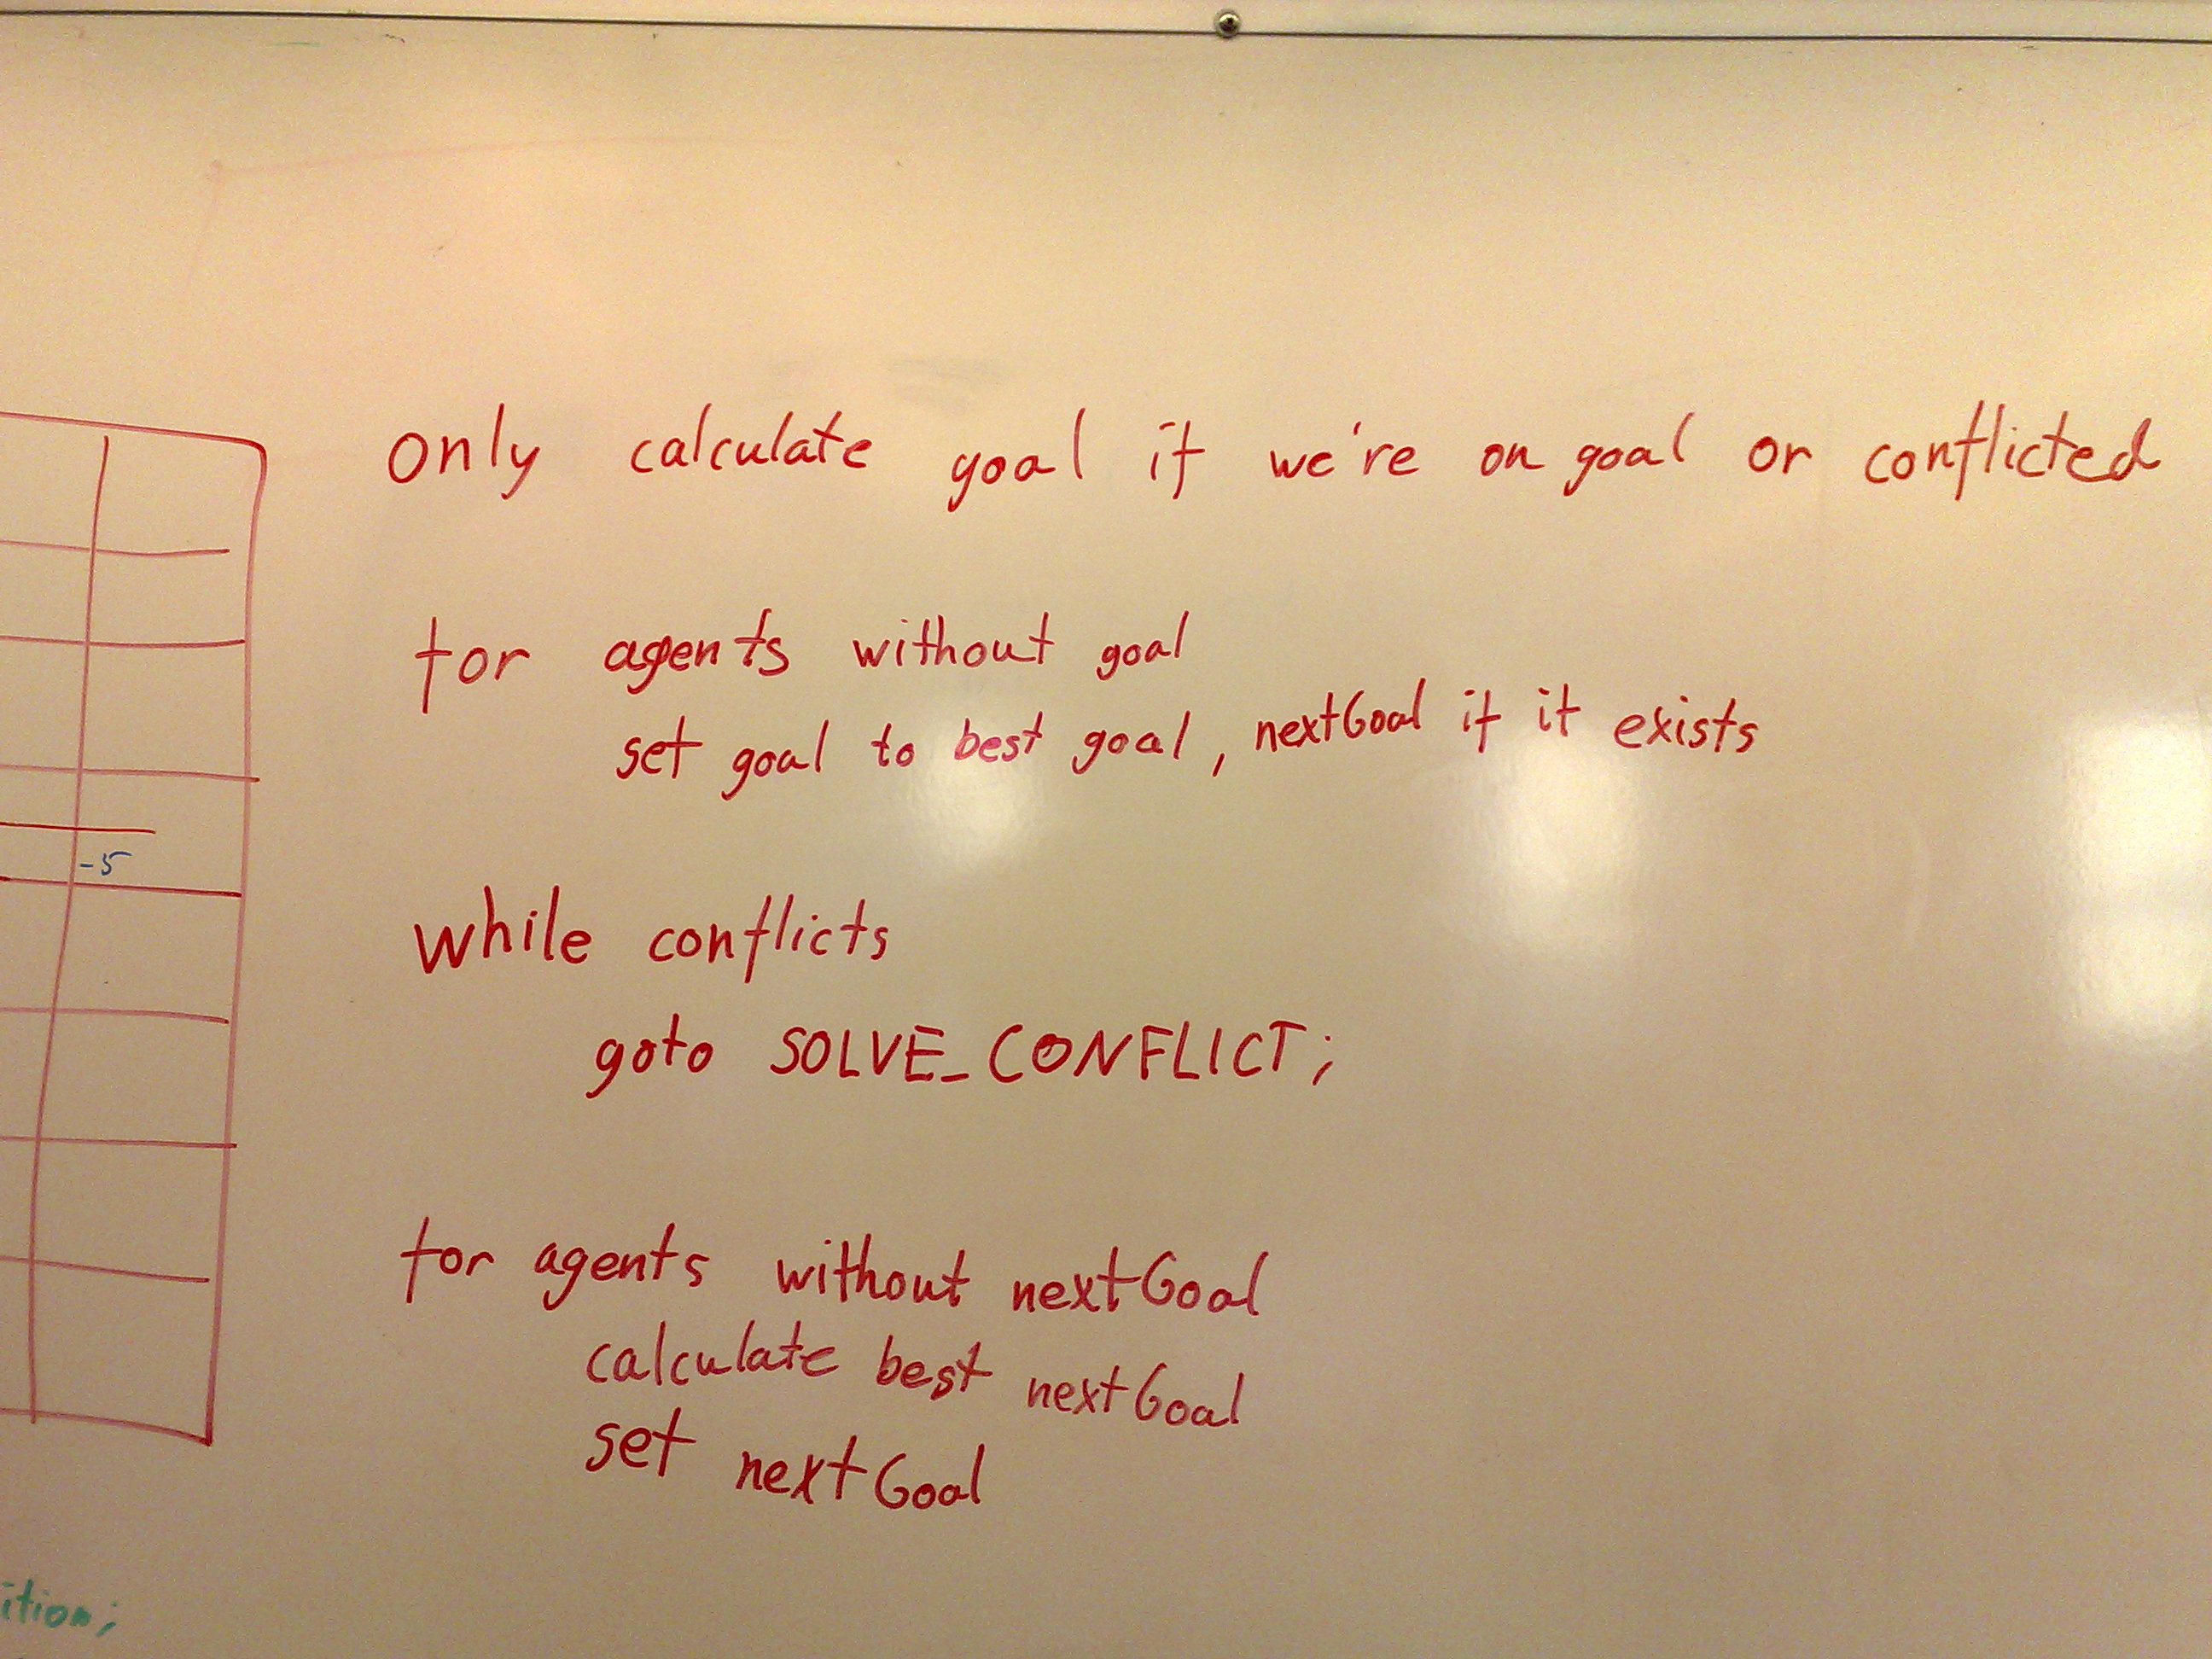 only calculate goal if we're on goal or conflicted
for agents without goal
set goal to best goal, nextGoal if it exists
-5
while conflicts
goto SOLVE_CONFLICT;
for agents without nextGoal
calculate best nextGoal
set nextGoal
ition;